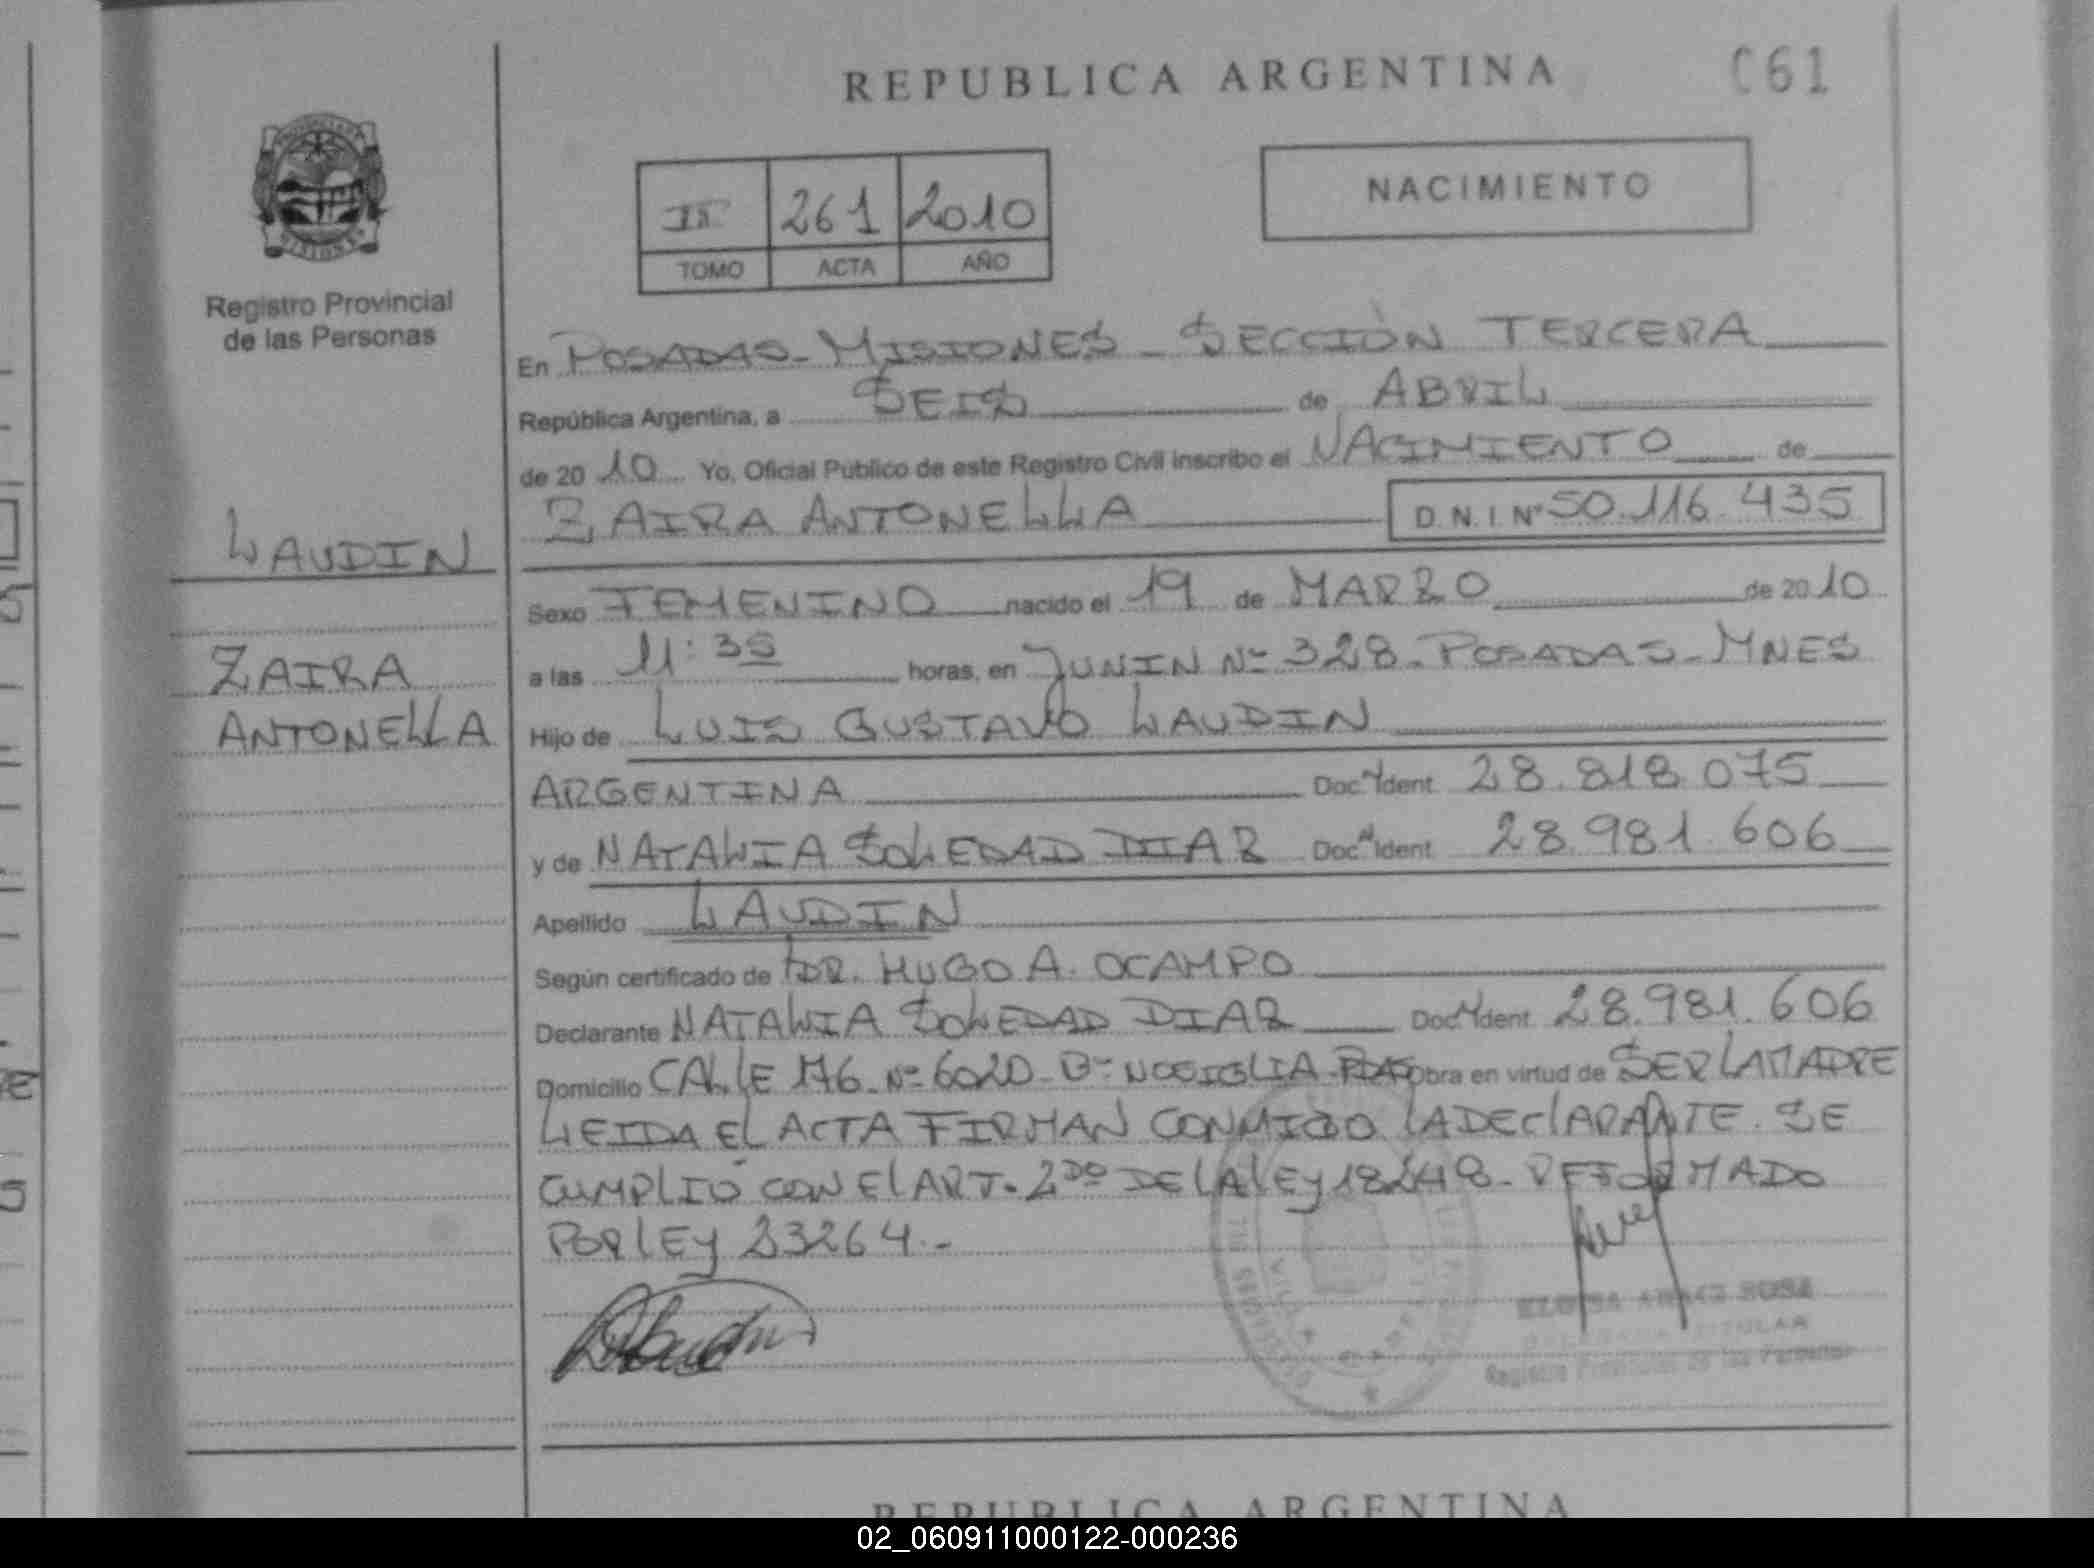 REPUBLICA ARGENTINA
C61
NACIMIENTO
II 261 2010
TOMO ACTA AÑO
Registro Provincial
de las Personas
En POSADAS - MISIONES - SECCIÓN TERCERA
República Argentina, a SEIS de ABRIL
de 20 10 Yo, Oficial Publico de este Registro Civil inscribo el NACIMIENTO de
ZAIRA ANTONELLA D.N.I. Nº 50.116.435
LAUDIN
Sexo FEMENINO nacido el 19 de MARZO de 20 10
ZAIRA
a las 11:35 horas, en JUNIN Nº 328 - POSADAS - MNES
ANTONELLA
Hijo de LUIS GUSTAVO LAUDIN
ARGENTINA Doc. Ident. 28.818.075
y de NATALIA SOLEDAD DIAZ Doc. Ident. 28.981.606
Apellido LAUDIN
Según certificado de DR. HUGO A. OCAMPO
Declarante NATALIA SOLEDAD DIAZ Doc. Ident. 28.981.606
Domicilio CALLE 176 Nº 6020 - Bº NOSIGLIA - PDAS Obra en virtud de SER LA MADRE
LEIDA EL ACTA FIRMAN CONMIGO LA DECLARANTE. SE
CUMPLIÓ CON EL ART. 2DO DE LA LEY 18248 - REFORMADO
POR LEY 23264.-
Registro Provincial de las Personas
REPUBLICA ARGENTINA
02_060911000122-000236